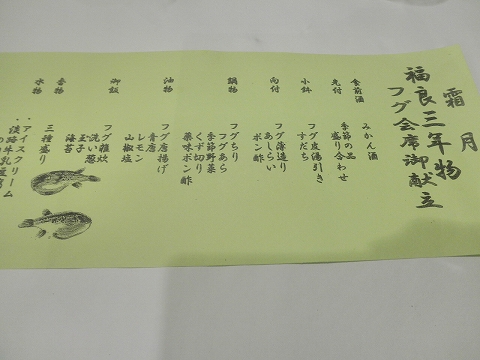 霜月
福良三年物
フグ会席御献立
食前酒
みかん酒
先付
季節の品
盛り合わせ
小鉢
フグ皮湯引き
すだち
向付
フグ薄造り
あしらい
ポン酢
鍋物
フグちり
フグあら
季節野菜
くず切り
薬味ポン酢
油物
フグ唐揚げ
青唐
レモン
山椒塩
御飯
フグ雑炊
洗い葱
玉子
海苔
香物
三種盛り
水物
アイスクリーム